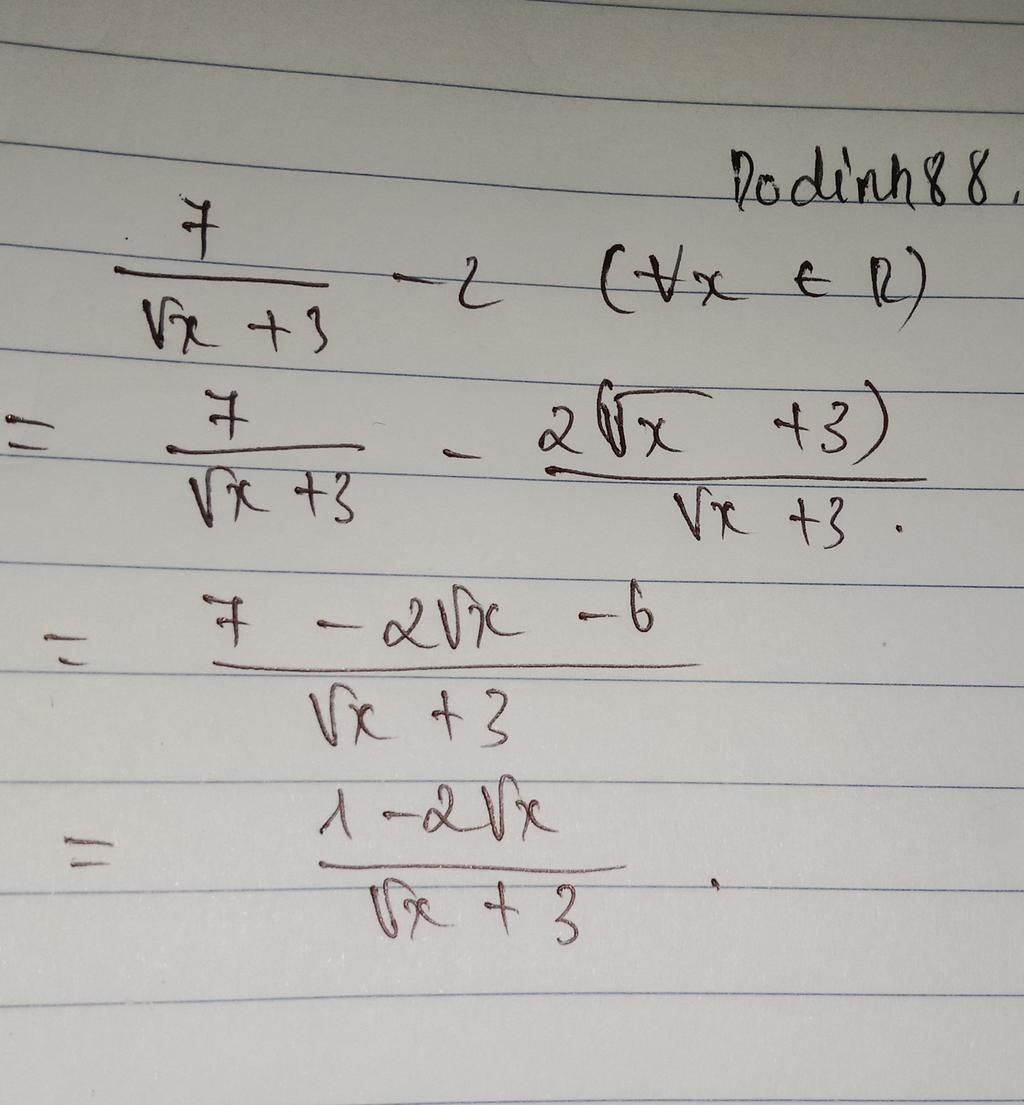 Dodinh88.
\frac{7}{\sqrt{x} + 3} - 2 (∀x ∈ R)
= \frac{7}{\sqrt{x} + 3} - \frac{2(\sqrt{x} + 3)}{\sqrt{x} + 3}.
= \frac{7 - 2\sqrt{x} - 6}{\sqrt{x} + 3}
= \frac{1 - 2\sqrt{x}}{\sqrt{x} + 3}.